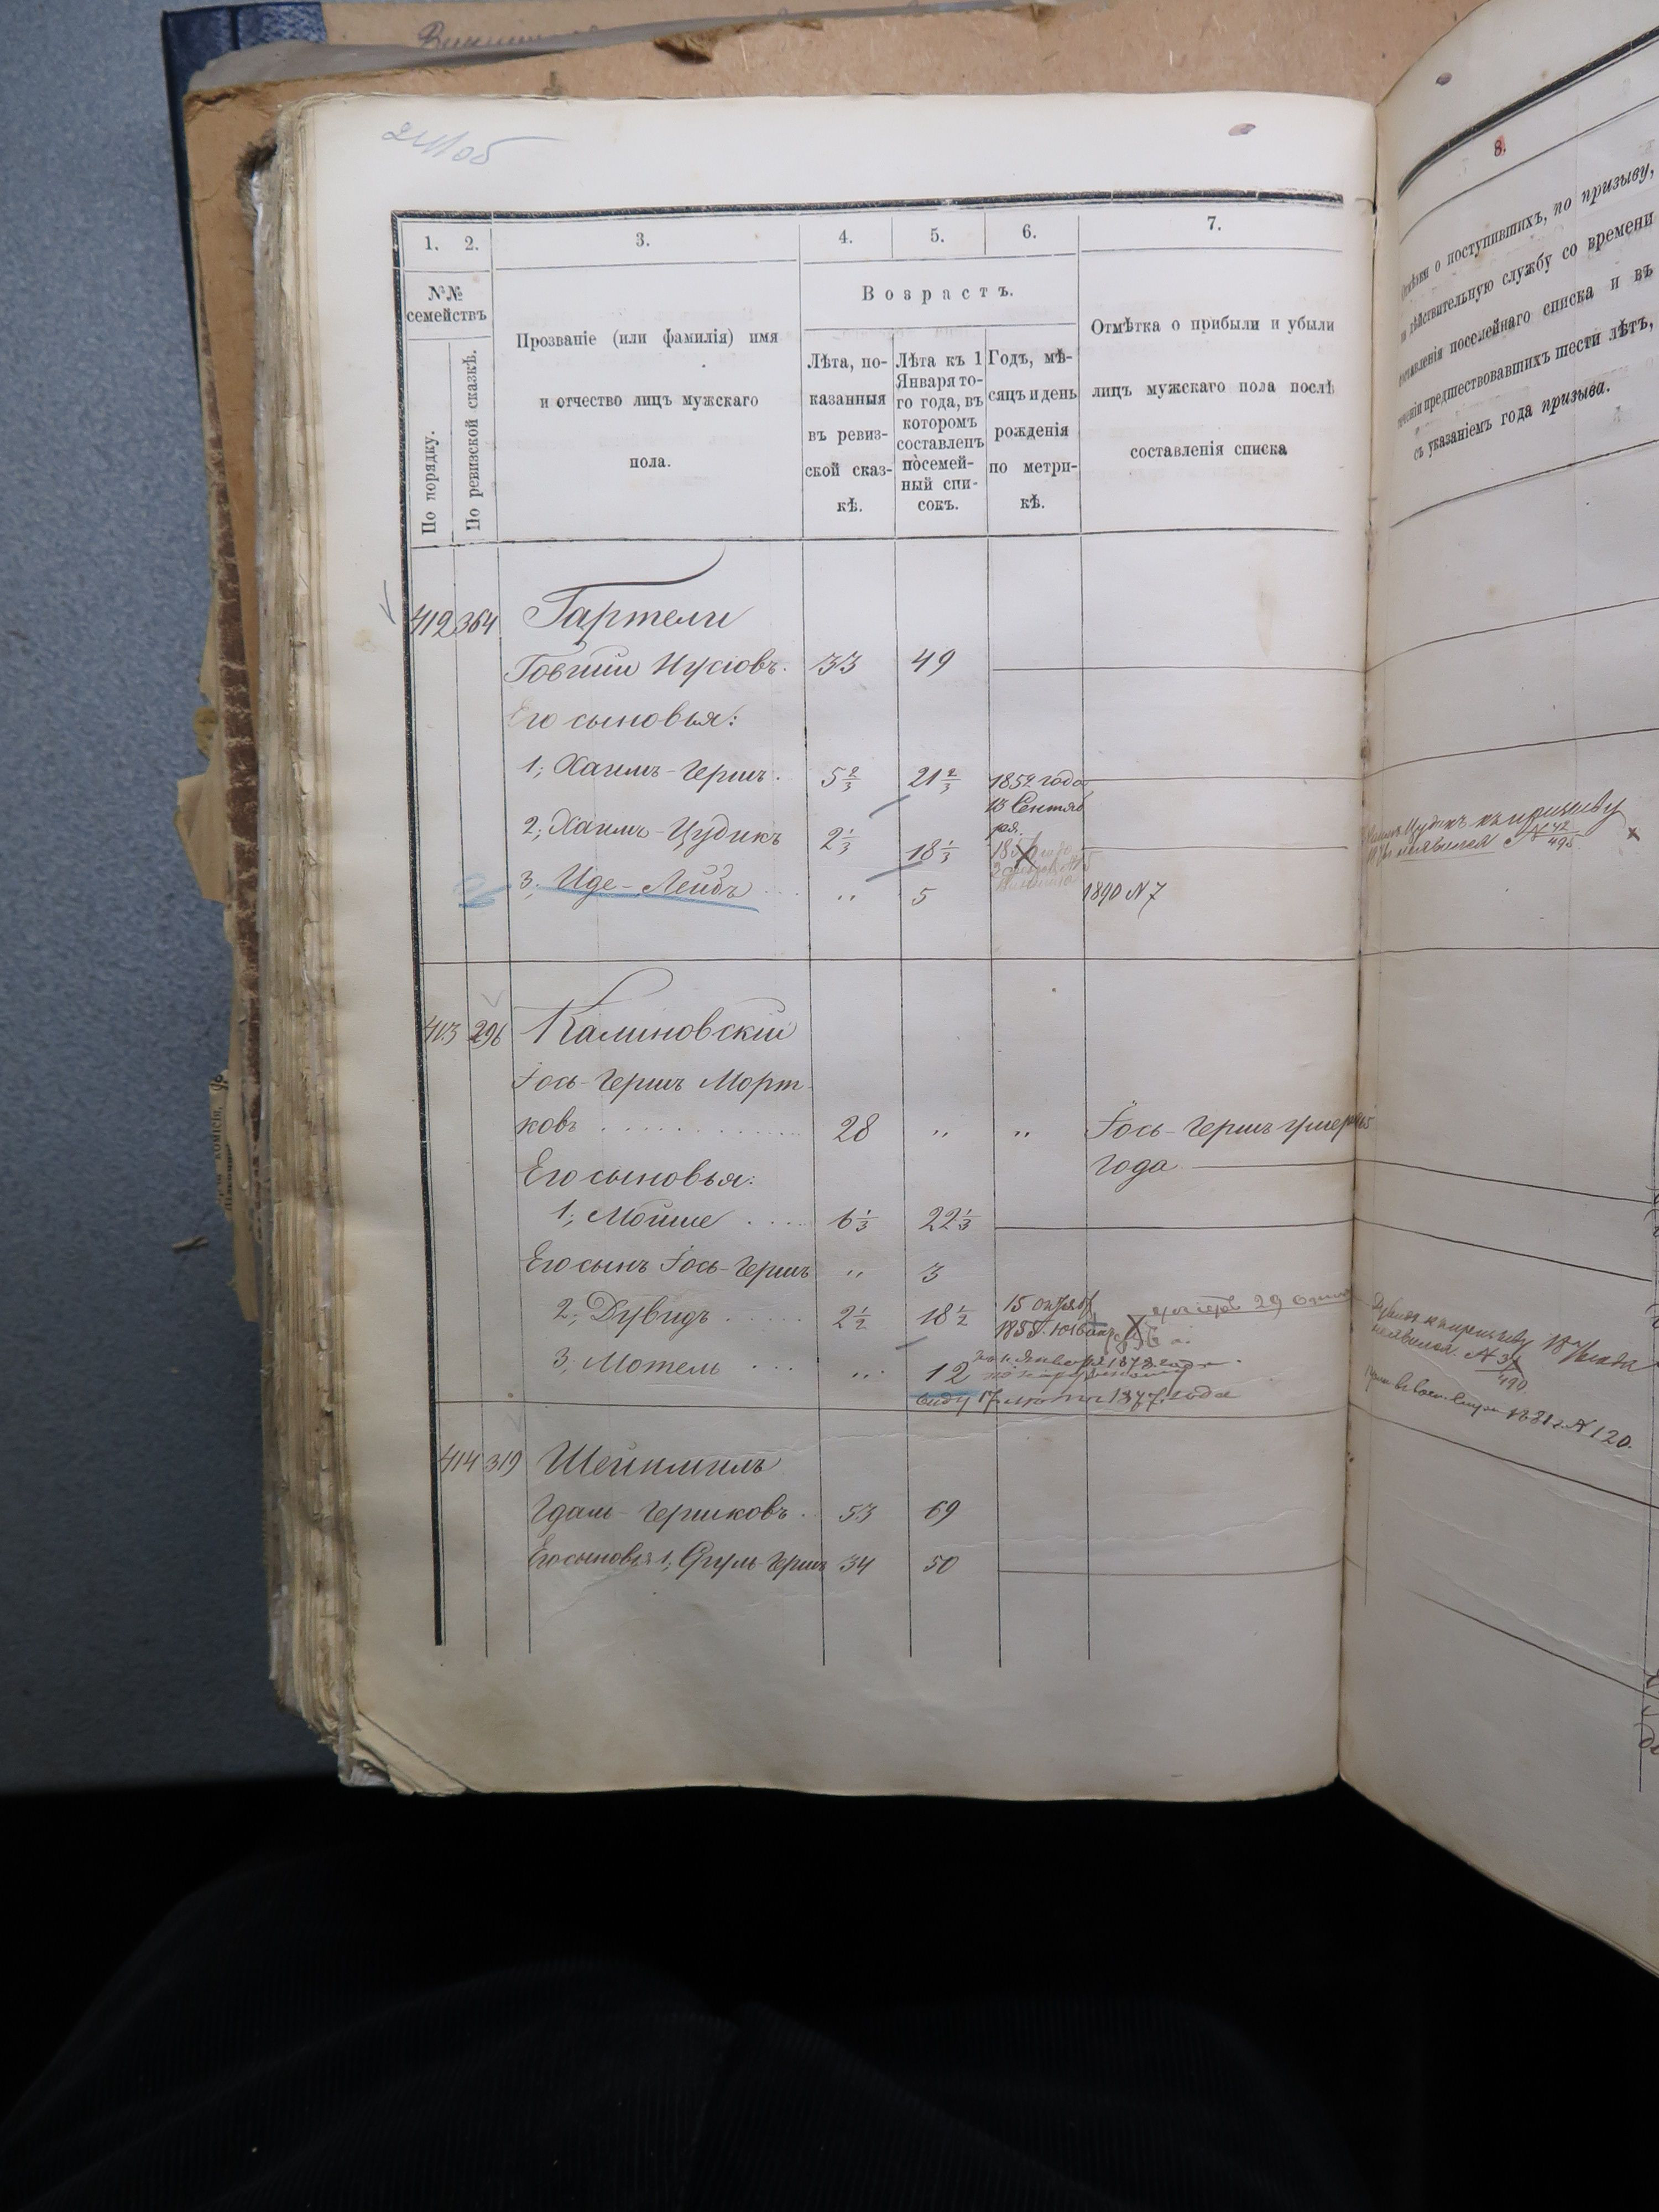 211об
1.
2.
3.
4.
5.
6.
7.
№№
семействъ
По порядку.
По ревизской сказкѣ.
Прозваніе (или фамилія) имя
и отчество лицъ мужскаго
пола.
Возрастъ.
Лѣта, по-
казанныя
въ ревиз-
ской сказ-
кѣ.
Лѣта къ 1
Января то-
го года, въ
которомъ
составленъ
посемей-
ный спи-
сокъ.
Годъ, мѣ-
сяцъ и день
рожденія
по метри-
кѣ.
Отмѣтка о прибыли и убыли
лицъ мужскаго пола послѣ
составленія списка
412 364 Гартели
Говшии Нусіовъ. 33 49
Его сыновья:
1; Хаимъ-Гершъ. 5 2/3 21 2/3 1852 года
13 Сентяб
ря.
2; Хаимъ-Цудикъ 2 1/3 18 1/3
3; Иде-Лейбъ " 5 1890 N 7
413 296 Калиновскій
Іось-Гершъ Морт-
ковъ 28 " " Іось-Гершъ умеръ 1865
года
Его сыновья:
1; Мойше 6 1/3 22 1/3
Его сынъ Іось-Гершъ " 3
2; Дувидъ 2 1/2 18 1/2 15 Октяб
3; Мотель " 12 къ 1 Января 1878 года
по наружному
виду 17 лѣтъ 1877 года
414 319 Шейнмиль
Гдаль-Гершковъ 53 69
Его сыновья 1; Сруль-Гершъ 34 50
8.
о поступившихъ, по призыву,
дѣйствительную службу со времени
составленія посемейнаго списка и въ
теченіи предшествовавшихъ шести лѣтъ,
съ указаніемъ года призыва.
Хаимъ Цудикъ къ призыву
неявился № 42/495
Дувидъ къ призыву
неявился. № 37/490
1881 г. № 120.